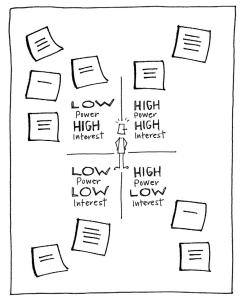 LOW
Power
HIGH
Interest
HIGH
Power
HIGH
Interest
LOW
Power
LOW
Interest
HIGH
Power
LOW
Interest